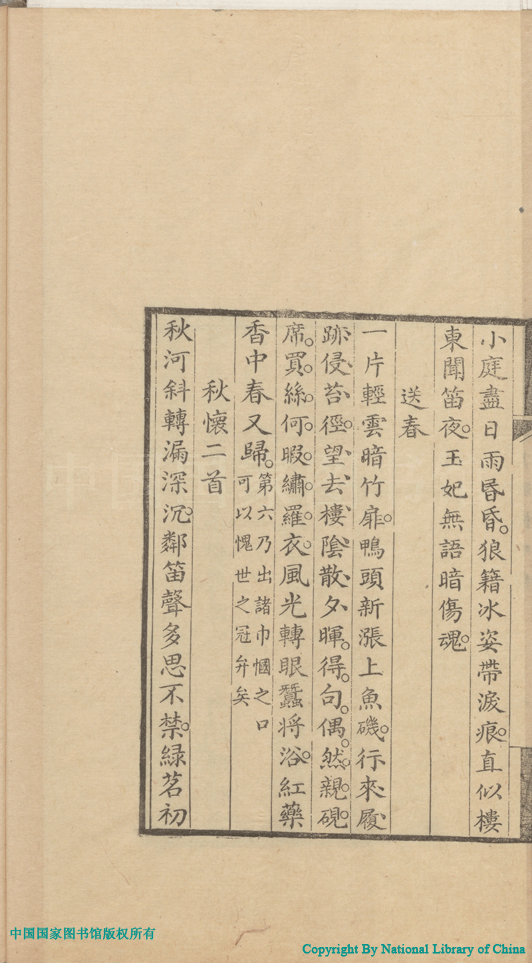 小庭盡日雨昏昏狼籍冰姿帶淚痕直似樓
東聞笛夜玉妃無語暗傷魂
送春
一片輕雲暗竹扉鴨頭新漲上魚磯行來履
跡侵苔徑望去樓陰散夕暉得句偶然親硯
席買絲何暇繡羅衣風光轉眼蠶將浴紅藥
香中春又歸第六乃出諸巾幗之口
可以愧世之冠弁矣
秋懷二首
秋河斜轉漏深沉鄰笛聲多思不禁綠茗初
中国国家图书馆版权所有
Copyright By National Library of China